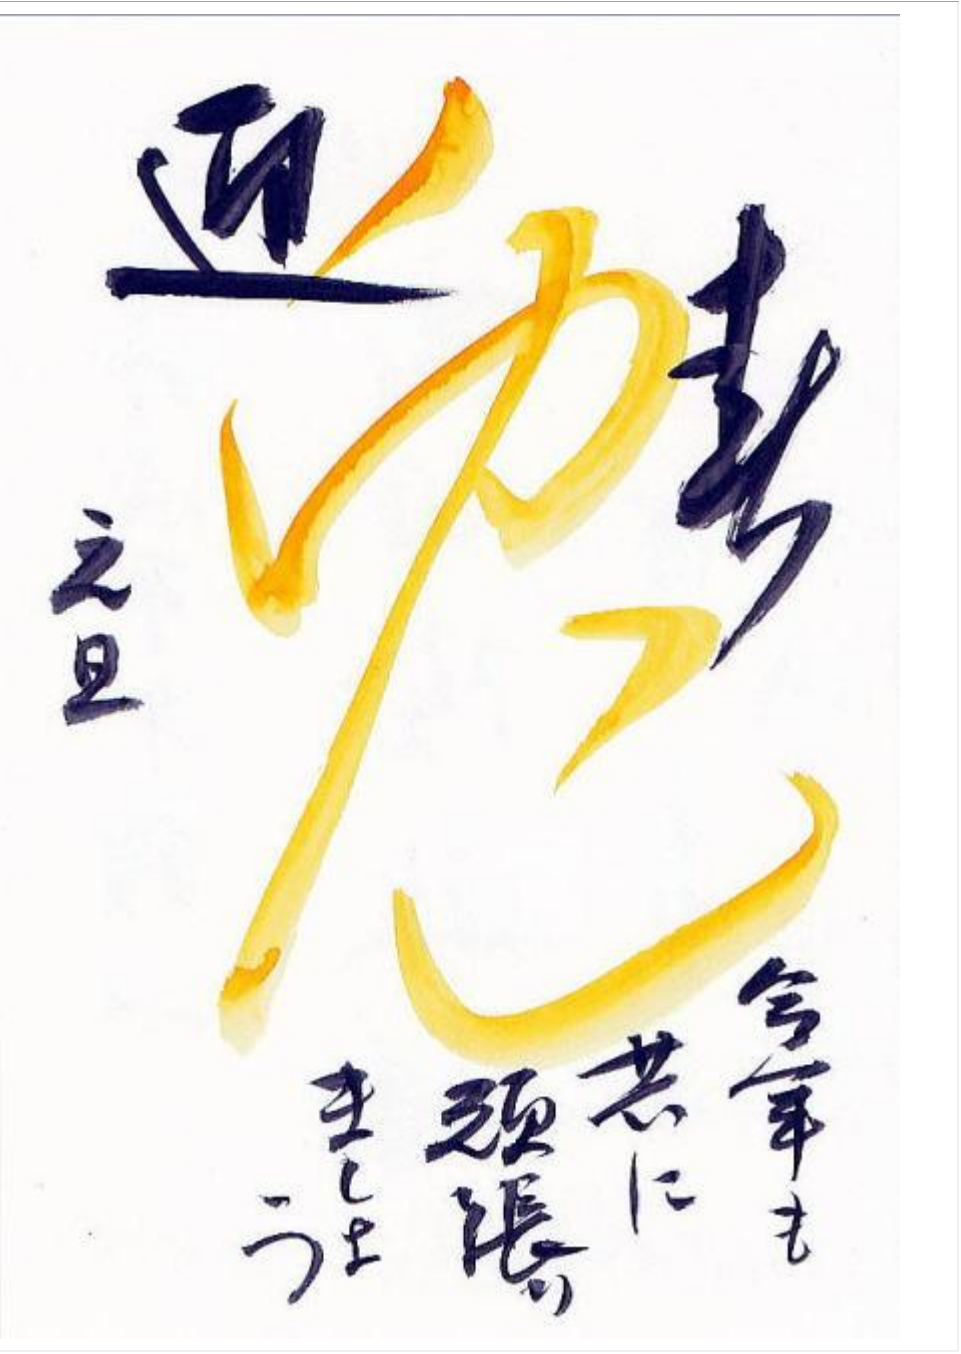 迎
春
今年も
共に
頑張り
ましょ
う
元旦